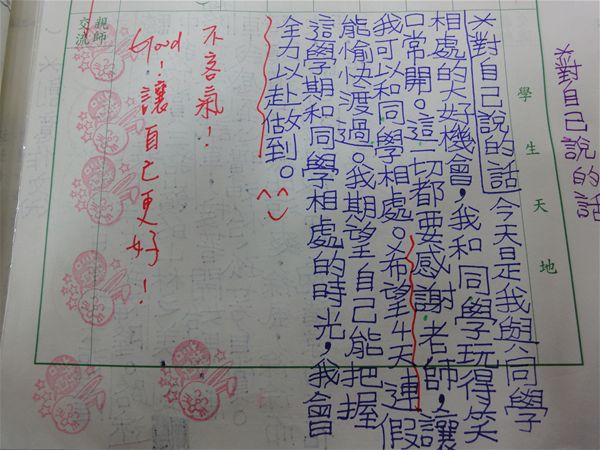 *對自己說的話
學生天地
*對自己說的話 今天是我與同學
相處的大好機會，我和同學玩得笑
口常開。這一切都要感謝老師，讓
我可以和同學相處。希望4天連假
能愉快渡過。我期望自己能把握
這學期和同學相處的時光，我會
全力以赴做到。^^
不客氣！
Good！讓自己更好！
親師
交流